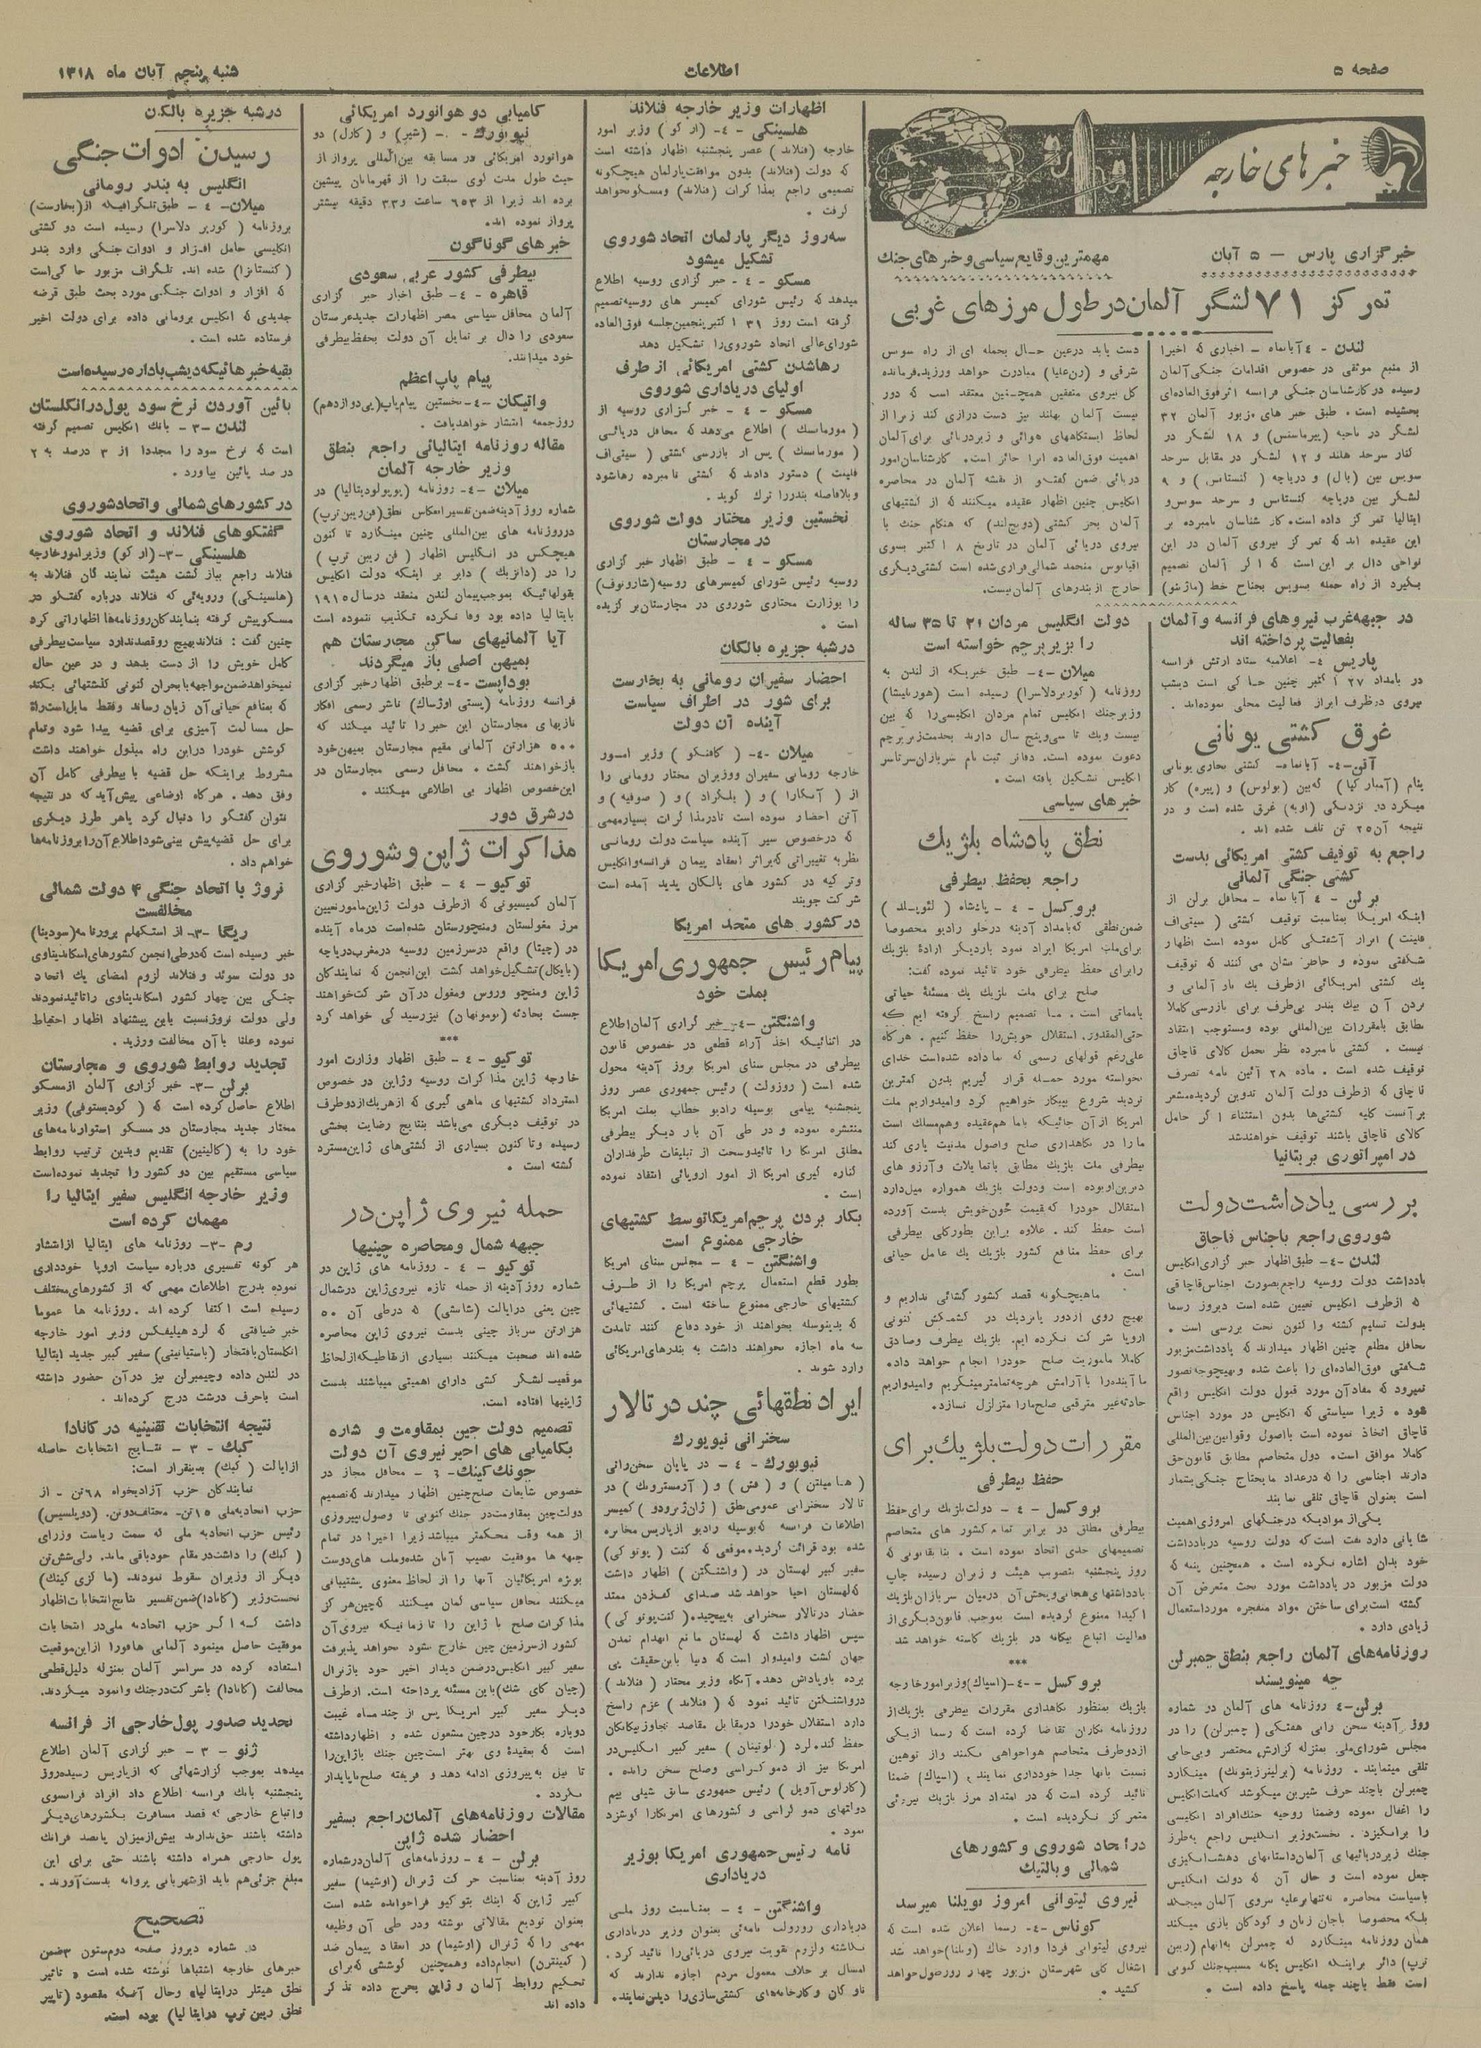 صفحه ۵
اطلاعات
شنبه پنجم آبان ماه ۱۳۱۸
خبرهای خارجه
خبرگزاری پارس – ۵ آبان
مهمترین وقایع سیاسی و خبرهای جنگ
تمرکز ۷۱ لشگر آلمان در طول مرزهای غربی
لندن - ۴ آبانماه - اخباری که اخیرا
از منبع موثقی در خصوص اقدامات جنگی آلمان
رسیده در کارشناسان جنگی فرانسه اثر فوق‌العاده‌ای
بخشیده است. طبق خبر های مزبور آلمان ۳۲
لشگر در ناحیه (پیرماسنس) و ۱۸ لشگر در
کنار سرحد هلند و ۱۲ لشگر در مقابل سرحد
سویس بین (بال) و دریاچه (کنستانس) و ۹
لشگر بین دریاچه کنستانس و سرحد سویس و
ایتالیا تمرکز داده است. کارشناسان نامبرده بر
این عقیده اند که تمرکز نیروی آلمان در این
نواحی دال بر این است که اگر آلمان تصمیم
بگیرد از راه حمله بسویس بجناح خط (ماژینو)
دست یابد درعین حال بحمله ای از راه سوس
شرقی و (رن‌علیا) مبادرت خواهد ورزید. فرمانده
کل نیروی متفقین همچنین معتقد است که دور
نیست آلمان بهلند نیز دست درازی کند زیرا از
لحاظ ایستگاههای هوائی و زیردریائی برای آلمان
اهمیت فوق‌العاده ایرا حائز است. کارشناسان امور
دریائی ضمن گفتگو از نقشه آلمان در محاصره
انگلیس چنین اظهار عقیده میکنند که از کشتیهای
آلمان بجز کشتی (دویچلند) که هنگام جنگ با
نیروی دریائی آلمان در تاریخ ۸ اکتبر بسوی
اقیانوس منجمد شمالی فراری شده است کشتی دیگری
خارج از بندرهای آلمان نیست.
در جبهه غرب نیروهای فرانسه و آلمان
بفعالیت پرداخته اند
پاریس ۴- اعلامیه ستاد ارتش فرانسه
در بامداد ۲۷ اکتبر چنین حاکی است دیشب
نیروی دوطرف ابراز فعالیت محلی نموده‌اند.
غرق کشتی یونانی
آتن-۴- آبانماه- کشتی تجاری یونانی
بنام که بین (بولوس) و (پیره) کار
میکرد در نزدیکی (اوبه) غرق شده است و در
نتیجه آن ۲۵ تن تلف شده اند.
راجع به توقیف کشتی امریکائی بدست
کشتی جنگی آلمانی
برلن - ۴ آبانماه - محافل برلن از
اینکه امریکا بمناسبت توقیف کشتی (سیتی‌اف
فلینت) ابراز آشفتگی کامل نموده است اظهار
شگفتی نموده و خاطر نشان می کنند که توقیف
یک کشتی امریکائی ازطرف یک ناو آلمانی و
بردن آن بیک بندر بی‌طرف برای بازرسی کاملا
مطابق بامقررات بین‌المللی بوده ومستوجب انتقاد
نیست. کشتی نامبرده نظر بحمل کالای قاچاق
توقیف شده است. ماده ۲۸ آئین نامه تصرف
قاچاقی که ازطرف دولت آلمان تدوین گردیده مشعر
برآنست کلیه کشتی‌ها بدون استثناء اگر حامل
کالای قاچاق باشند توقیف خواهند شد
در امپراتوری بریتانیا
بررسی یادداشت دولت
شوروی راجع باجناس قاچاق
لندن -۴- طبق اظهار خبرگزاری انگلیس
یادداشت دولت روسیه راجع بصورت اجناس قاچاقی
که ازطرف انگلیس تعیین شده است دیروز رسما
بدولت تسلیم گشته واکنون تحت بررسی است.
محافل مطلع چنین اظهار میدارند که یادداشت مزبور
شگفتی فوق‌العاده‌ای را باعث شده وبهیچوجه تصور
نمیرود که مفاد آن مورد قبول دولت انگلیس واقع
شود. زیرا سیاستی که انگلیس در مورد اجناس
قاچاق اتخاذ نموده است بااصول وقوانین بین‌المللی
کاملا موافق است. دول متخاصم مطابق قانون حق
دارند اجناسی را که درعداد مایحتاج جنگی بشمار
است بعنوان قاچاق تلقی نمایند
یکی از موادیکه درجنگهای امروزی اهمیت
شایانی دارد نفت است که دولت روسیه دریادداشت
خود بدان اشاره نکرده است. همچنین پنبه که
دولت مزبور در یادداشت مورد بحث متعرض آن
گشته است برای ساختن مواد منفجره مورد استعمال
زیادی دارد.
روزنامه‌های آلمان راجع بنطق چمبرلن
چه مینویسند
برلن-۴ روزنامه های آلمان در شماره
روز آدینه سخن رانی هفتگی (چمبرلن) را در
مجلس شورای ملی بمنزله گزارش مختصر وبی‌حاتی
تلقی مینمایند. روزنامه (برلینرزیتونگ) مینگارد
چمبرلن باچند حرف شیرین میکوشد که ملت انگلیس
را اغفال نموده وضمنا روحیه جنگ افراد انگلیسی
را برانگیزد. نخست وزیر انگلیس راجع به طرز
جنگ زیردریائیهای آلمان داستانهای دهشت انگیزی
جعل نموده است و حال آن که دولت انگلیس
باسیاست محاصره نه‌تنها برعلیه نیروی آلمان میجنگد
بلکه مخصوصا باجان زنان و کودکان بازی میکند
همان روزنامه مینگارد که چمبرلن به‌اتهام (ریبن
تروپ) دائر براینکه انگلیس یگانه مسبب جنگ کنونی
است فقط باچند جمله پاسخ داده است.
دولت انگلیس مردان ۲۱ تا ۳۵ ساله
را بزیر پرچم خواسته است
میلان -۴- طبق خبریکه از لندن به
روزنامه (کوریردلاسرا) رسیده است (هوربلیشا)
وزیرجنگ انگلیس تمام مردان انگلیسی‌را که بین
بیست ویک تا سی‌وپنج سال دارند بخدمت زیرپرچم
دعوت نموده است. دفاتر ثبت نام سربازان سرتاسر
انگلیس تشکیل یافته است.
خبرهای سیاسی
نطق پادشاه بلژیک
راجع بحفظ بیطرفی
بروکسل - ۴ - پادشاه (لئوپولد)
ضمن‌نطقی که‌بامداد آدینه درجلو رادیو مخصوصا
برای‌ملت امریکا ایراد نمود باردیگر ارادهٔ بلژیک
رابرای حفظ بیطرفی خود تائید نموده گفت:
صلح برای ملت بلژیک یک مسئلهٔ حیاتی
یامماتی است. ما تصمیم راسخ گرفته ایم که
حتی‌المقدور استقلال خویش‌را حفظ کنیم. هرگاه
علی‌رغم قولهای رسمی که بما داده شده‌است خدای
نخواسته مورد حمله قرار گیریم بدون کمترین
تردید شروع بپیکار خواهیم کرد وامیدواریم ملت
امریکا از آن جائیکه باما هم‌عقیده وهم‌مسلک است
مارا در نگاهداری صلح واصول مدنیت یاری کند
بیطرفی ملت بلژیک مطابق باتمایلات وآرزو های
دیرین‌اوبوده است ودولت بلژیک همواره میل‌دارد
استقلال خودرا که‌بقیمت خون‌خویش بدست آورده
است حفظ کند. علاوه براین بطورکلی بیطرفی
برای حفظ منافع کشور بلژیک یک عامل حیاتی
است.
ماهیچگونه قصد کشور گشائی نداریم و
بهیچ روی ازدور یانزدیک در کشمکش کنونی
اروپا شرکت نکرده ایم. بلژیک بیطرف وصادق
کاملا ماموریت صلح خودرا انجام خواهد داد.
ماآینده‌را باآرامش هرچه تمامتر مینگریم وامیدواریم
حادثه غیر مترقبی صلح‌مارا متزلزل نسازد.
مقررات دولت بلژیک برای
حفظ بیطرفی
بروکسل - ۴ - دولت بلژیک برای حفظ
بیطرفی مطلق در برابر تمام کشور های متخاصم
تصمیمهای جدی اتخاذ نموده است. بنا بقانونی که
روز پنجشنبه بتصویب هیئت وزیران رسیده چاپ
یادداشتهای هیجانی وپخش آن درمیان سربازان بلژیک
اکیدا ممنوع گردیده است بموجب قانون‌دیگری از
فعالیت اتباع بیگانه در بلژیک کاسته خواهد شد
***
بروکسل - ۴-(اسپاک) وزیر امور خارجه
بلژیک بمنظور نگاهداری مقررات بیطرفی بلژیک‌از
روزنامه نگاران تقاضا کرده است که رسما ازیکی
ازدوطرف متخاصم هواخواهی نکنند واز توهین
نسبت بآنها جدا خودداری نمایند، (اسپاک) ضمنا
تائید کرده است که در امتداد مرز بلژیک نیروئی
متمرکز نگردیده است.
در اتحاد شوروی و کشورهای
شمالی و بالتیک
نیروی لیتوانی امروز بویلنا میرسد
کوناس -۴- رسما اعلان شده است که
نیروی لیتوانی فردا وارد خاک (ویلنا)خواهد شد
اشغال کلی شهرستان مزبور چهار روز طول خواهد
کشید.
اظهارات وزیر خارجه فنلاند
هلسینکی - ۴ - (ارکو) وزیر امور
خارجه (فنلاند) عصر پنجشنبه اظهار داشته است
که دولت (فنلاند) بدون موافقت پارلمان هیچگونه
تصمیمی راجع بمذاکرات (فنلاند) ومسکو نخواهد
گرفت.
سه‌روز دیگر پارلمان اتحاد شوروی
تشکیل میشود
مسکو - ۴ - خبر گزاری روسیه اطلاع
میدهد که رئیس شورای کمیسر های روسیه تصمیم
گرفته است روز ۳۱ اکتبر پنجمین جلسه فوق‌العاده
شورای عالی اتحاد شوروی را تشکیل دهد
رهاشدن کشتی امریکائی از طرف
اولیای دریاداری شوروی
مسکو - ۴ - خبر گزاری روسیه از
(مورمانسک) اطلاع می‌دهد که محافل دریائی
(مورمانسک) پس از بازرسی کشتی (سیتی‌اف
فلینت) دستور دادند که کشتی نامبرده رها شود
وبلافاصله بندررا ترک گوید.
نخستین وزیر مختار دولت شوروی
در مجارستان
مسکو - ۴ - طبق اظهار خبر گزاری
روسیه رئیس شورای کمیسرهای روسیه(شارونوف)
را بوزارت مختاری شوروی در مجارستان برگزیده
است.
درشبه جزیره بالکان
احضار سفیران رومانی به بخارست
برای شور در اطراف سیاست
آینده آن دولت
میلان -۴- (گافنکو) وزیر امور
خارجه رومانی سفیران ووزیران مختار رومانی را
از (آنکارا) و (بلگراد) و (صوفیه) و
آتن احضار نموده است تادرمذاکرات بسیارمهمی
که‌درخصوص سیر آینده سیاست دولت رومانی
نظر به تغییراتی که‌براثر انعقاد پیمان فرانسه‌وانگلیس
وترکیه در کشور های بالکان پدید آمده است
شرکت جویند
در کشور های متحد امریکا
پیام رئیس جمهوری امریکا
بملت خود
واشنگتن -۴- خبر گزاری آلمان اطلاع
در اثنائیکه اخذ آراء قطعی در خصوص قانون
بیطرفی در مجلس سنای امریکا بروز آدینه محول
شده است (روزولت) رئیس جمهوری عصر روز
پنجشنبه پیامی بوسیله رادیو خطاب بملت امریکا
منتشره نموده و در طی آن بار دیگر بیطرفی
مطلق امریکا را تائیدوسخت از تبلیغات طرفداران
کناره گیری امریکا از امور اروپائی انتقاد نموده
است.
بکار بردن پرچم امریکا توسط کشتیهای
خارجی ممنوع است
واشنگتن - ۴ - مجلس سنای امریکا
بطور قطع استعمال پرچم امریکا را از طرف
کشتیهای خارجی ممنوع ساخته است. کشتیهائی
که بدینوسله بخواهند از خود دفاع کنند تامدت
سه ماه اجازه نخواهند داشت به بندرهای امریکائی
وارد شوند.
ایراد نطقهائی چند در تالار
سخنرانی نیویورک
نیویورک - ۴ - در پایان سخن‌رانی
(هامیلتن) و (فش) و (آرمسترونک) در
تالار سخنرانی عمومی نطق (ژان‌ژیرودو) کمیسر
اطلاعات فرانسه که‌بوسیله رادیو ازپاریس مخابره
شده بود قرائت گردید. موقعی که کنت (پوتو کی)
سفیر کبیر لهستان در (واشنگتن) اظهار داشت
که‌لهستان احیا خواهد شد صدای کف‌زدن ممتد
حضار درتالار سخنرانی به‌پیچید. (کنت‌پوتو کی)
سپس اظهار داشت که لهستان مانع انهدام تمدن
جهان گشت وامیدوار است که دنیا باین‌حقیقت پی
برده باویاداش دهد. آنگاه وزیر مختار (فنلاند)
درواشنگتن تائید نمود که (فنلاند) عزم راسخ
دارد استقلال خودرا درمقابل مقاصد تجاوز بیگانگان
حفظ کند. لرد (لوتیان) سفیر کبیر انگلیس‌در
امریکا نیز از دمو کراسی وصلح سخن رانده.
(کارلوس آویل) رئیس جمهوری سابق شیلی بیم
دولتهای دمو کراسی و کشورهای امریکارا گوشزد
نمود.
نامه رئیس جمهوری امریکا بوزیر
دریاداری
واشنگتن - ۴ - بمناسبت روز ملی
دریاداری روزولت نامه‌ئی بعنوان وزیر دریاداری
نگاشته ولزوم تقویت نیروی دریائی‌را تائید کرد.
امسال بر خلاف معمول مردم اجازه ندارند که
ناوگان وکارخانه‌های کشتی‌سازی را دیدن نمایند.
کامیابی دو هوانورد امریکائی
نیویورک - ۴ - (شیر) و (کارل) دو
هوانورد امریکائی در مسابقه بین‌المللی پرواز از
حیث طول مدت گوی سبقت را از قهرمانان پیشین
برده اند زیرا از ۶۵۳ ساعت و۳۳ دقیقه بیشتر
پرواز نموده اند.
خبرهای گوناگون
بیطرفی کشور عربی سعودی
قاهره -۴- طبق اخبار خبر گزاری
آلمان محافل سیاسی مصر اظهارات جدیدعربستان
سعودی را دال بر تمایل آن دولت بحفظ بیطرفی
خود میدانند.
پیام پاپ اعظم
واتیکان -۴- نخستین پیام پاپ(پی‌دوازدهم)
روزجمعه انتشار خواهدیافت.
مقاله روزنامه ایتالیائی راجع بنطق
وزیر خارجه آلمان
میلان -۴- روزنامه (پوپولودیتالیا) در
شماره روز آدینه ضمن تفسیر انعکاس نطق(فن‌ریبن‌تروپ)
درروزنامه های بین‌المللی چنین مینگارد تا کنون
هیچکس در انگلیس اظهار (فن ریبن تروپ)
را در (دانزیک) دایر بر اینکه دولت انگلیس
بقولهائیکه بموجب پیمان لندن منعقد درسال ۱۹۱۵
بایتالیا داده بود وفا نکرده تکذیب ننموده است
آیا آلمانیهای ساکن مجارستان هم
بمیهن اصلی باز میگردند
بوداپست -۴- برطبق اظهار خبر گزاری
فرانسه روزنامه (پستی اوژساک) ناشر رسمی افکار
نازیهای مجارستان این خبر را تائید میکند که
۵۰۰ هزارتن آلمانی مقیم مجارستان بمیهن خود
بازخواهند گشت. محافل رسمی مجارستان در
این‌خصوص اظهار بی اطلاعی میکنند.
درشرق دور
مذاکرات ژاپن و شوروی
توکیو - ۴ - طبق اظهار خبر گزاری
آلمان کمیسیونی که ازطرف دولت ژاپن مامورتعیین
مرز مغولستان ومنچوریستان شده‌است درماه آینده
در (چیتا) واقع درسرزمین روسیه درمغرب دریاچه
(بایکال)تشکیل خواهد گشت این‌انجمن که نمایندگان
ژاپن ومنچو وروس ومغول درآن شرکت خواهند
جست بحادثه (نومونهان) نیزرسید گی خواهد کرد
***
توکیو - ۴ - طبق اظهار وزارت امور
خارجه ژاپن مذاکرات روسیه وژاپن در خصوص
استرداد کشتیهای ماهی گیری که ازهریک ازدوطرف
در توقیف دیگری می‌باشد بنتایج رضایت بخشی
رسیده وتا کنون بسیاری از کشتی‌های ژاپن مسترد
گشته است.
حمله نیروی ژاپن در
جبهه شمال ومحاصره چینیها
توکیو - ۴ - روزنامه های ژاپن در
شماره روز آدینه از حمله تازه نیروی ژاپن درشمال
چین یعنی درایالت (شانسی) که درطی آن ۵۰
هزارتن سرباز چینی بدست نیروی ژاپن محاصره
شده اند صحبت میکنند بسیاری ازنقاطیکه ازلحاظ
موقعیت لشگر کشی دارای اهمیتی میباشند بدست
ژاپنیها افتاده است.
تصمیم دولت چین بمقاومت و شاره
بکامیابی های اخیر نیروی آن دولت
چونک کینک - ۴ - محافل مجاز در
خصوص شایعات صلح چنین اظهار میدارند که‌تصمیم
دولت‌چین بمقاومت‌در جنگ کنونی تا وصول بپیروزی
از همه وقت محکمتر میباشد زیرا اخیرا در تمام
جبهه ها موفقیت نصیب آنان شده‌وملت های دوست
بویژه امریکائیان آنها را از لحاظ معنوی پشتیبانی
میکنند محافل سیاسی گمان میکنند که‌چین هرگز
مذاکرات صلح با ژاپن را تا زمانیکه نیروی‌آن
کشور ازسرزمین چین خارج نشود نخواهد پذیرفت
سفیر کبیر انگلیس درضمن دیدار اخیر خود باژنرال
(چیان کای شک) باین مسئله پرداخته است. ازطرف
دیگر سفیر کبیر امریکا پس از چند ماه غیبت
دوباره بکارخود درچین مشغول شده و اظهارداشته
است که بعقیدهٔ وی بهتر است‌چین جنگ باژاپن‌را
تا نیل به‌پیروزی ادامه دهد و فریفته صلح ناپایدار
نگردد.
مقالات روزنامه‌های آلمان راجع بسفیر
احضار شده ژاپن
برلن - ۴ - روزنامه‌های آلمان درشماره
روز آدینه بمناسبت حرکت ژنرال (اوشیما) سفیر
کبیر ژاپن که اینک بتوکیو فراخوانده شده است
بعنوان تودیع مقالاتی نوشته ودر طی آن وظیفه
مهمی را که ژنرال (اوشیما) در انعقاد پیمان ضد
(کمینترن) انجام‌داده وهمچنین کوششی که‌برای
تحکیم روابط آلمان و ژاپن بخرج داده تذکر
داده اند
درشبه جزیره بالکان
رسیدن ادوات جنگی
انگلیس به بندر رومانی
میلان- ۴ - طبق‌تلگرافیکه از(بخارست)
بروزنامه (کوریر دلاسرا) رسیده است دو کشتی
انگلیسی حامل افزار و ادوات جنگی وارد بندر
(کنستانزا) شده اند. تلگراف مزبور حاکی‌است
که افزار و ادوات جنگی مورد بحث طبق قرضه
جدیدی که انگلیس برومانی داده برای دولت اخیر
فرستاده شده است.
بقیه خبرهائیکه دیشب باداره رسیده است
پائین آوردن نرخ سود پول در انگلستان
لندن -۳- بانک انگلیس تصمیم گرفته
است که نرخ سود را مجددا از ۳ درصد به ۲
در صد پائین بیاورد.
در کشورهای شمالی و اتحاد شوروی
گفتگوهای فنلاند و اتحاد شوروی
هلسینکی -۳- (ارکو) وزیر امورخارجه
فنلاند راجع بباز گشت هیئت نمایندگان فنلاند به
(هلسینکی) ورویه‌ئی که فنلاند درباره گفتگو در
مسکوپیش گرفته بنمایندگان روزنامه‌ها اظهاراتی کرده
چنین گفت: فنلاندبهیچ روقصدندارد سیاست بیطرفی
کامل خویش را از دست بدهد و در عین حال
نمیخواهدضمن مواجهه بابحران کنونی گذشتهائی بکند
که بمنافع حیاتی آن زیان رساند وفقط مایل‌است‌راه
حل مسالمت آمیزی برای قضیه پیدا شود وتمام
کوشش خودرا دراین راه مبذول خواهند داشت
مشروط براینکه حل قضیه با بیطرفی کامل آن
وفق دهد. هرگاه اوضاعی پیش‌آید که در نتیجه
نتوان گفتگو را دنبال کرد یاهر طرز دیگری
برای حل قضیه‌پیش بینی‌شود اطلاع آن‌را بروزنامه‌ها
خواهم داد.
نروژ با اتحاد جنگی ۴ دولت شمالی
مخالفست
ریگا -۳- از استکهلم بروزنامه (سودینا)
خبر رسیده است که‌درطی انجمن کشورهای اسکاندیناوی
دو دولت سوئد و فنلاند لزوم امضای یک اتحاد
جنگی بین چهار کشور اسکاندیناوی راتائیدنمودند
ولی دولت نروژنسبت باین پیشنهاد اظهار احتیاط
نموده وعلنا باآن مخالفت ورزید.
تجدید روابط شوروی و مجارستان
برلن -۳- خبر گزاری آلمان ازمسکو
اطلاع حاصل کرده است که (کودیستوفی) وزیر
مختار جدید مجارستان در مسکو استوارنامه‌های
خود را به (کالینین) تقدیم وبدین ترتیب روابط
سیاسی مستقیم بین دو کشور را تجدید نموده‌است
وزیر خارجه انگلیس سفیر ایتالیا را
مهمان کرده است
رم -۳- روزنامه های ایتالیا ازانتشار
هر گونه تفسیری درباره سیاست اروپا خودداری
نموده بدرج اطلاعات مهمی که از کشورهای‌مختلف
رسیده است اکتفا کرده اند. روزنامه ها عموما
خبر ضیافتی که لرد هیلیفکس وزیر امور خارجه
انگلستان بافتخار (باستیانینی) سفیر کبیر جدید ایتالیا
در لندن داده وچیمبرلن نیز درآن حضور داشته
است باحرف درشت درج کرده‌اند.
نتیجه انتخابات تقنینیه در کانادا
کبک - ۳ - نتایج انتخابات حاصله
ازایالت (کبک) بدینقرار است:
نمایندگان حزب آزادیخواه ۶۸تن - از
حزب اتحادیه‌ملی ۱۵تن- مختلف دوتن. (دوپلسیس)
رئیس حزب اتحادیه ملی که سمت ریاست وزرای
(کبک) را داشت‌در مقام خودباقی ماند. ولی‌شش‌تن
دیگر از وزیران سقوط نمودند. (ماکزی کینک)
نخست‌وزیر (کانادا)ضمن‌تفسیر نتایج‌انتخابات‌اظهار
داشت که اگر حزب اتحادیه ملی‌در انتخابات
موفقیت حاصل مینمود آلمانی هافورا از‌این‌موقعیت
استفاده کرده در سراسر آلمان بمنزله دلیل‌قطعی
مخالفت (کانادا) باشرکت‌درجنگ وانمود میکردند.
تحدید صدور پول خارجی از فرانسه
ژنو - ۳ - خبر گزاری آلمان اطلاع
میدهد بموجب گزارشهائی که ازپاریس رسیده‌روز
پنجشنبه بانک فرانسه اطلاع داد افراد فرانسوی
واتباع خارجی که قصد مسافرت بکشورهای‌دیگر
داشته باشند حق‌ندارند بیش‌ازمیزان پانصد فرانک
پول خارجی همراه داشته باشند حتی برای این
مبلغ جزئی‌هم باید ازشهربانی پروانه بدست‌آورند.
تصحیح
در شماره دیروز صفحه دوم‌ستون ۳ضمن
خبرهای خارجه اشتباها نوشته شده است « تاثیر
نطق هیتلر درایتالیا» وحال آنکه مقصود (تاثیر
نطق ریبن تروپ درایتالیا) بوده است.